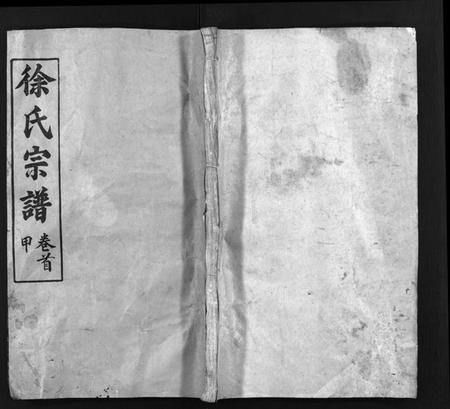 徐氏宗譜
卷首
甲